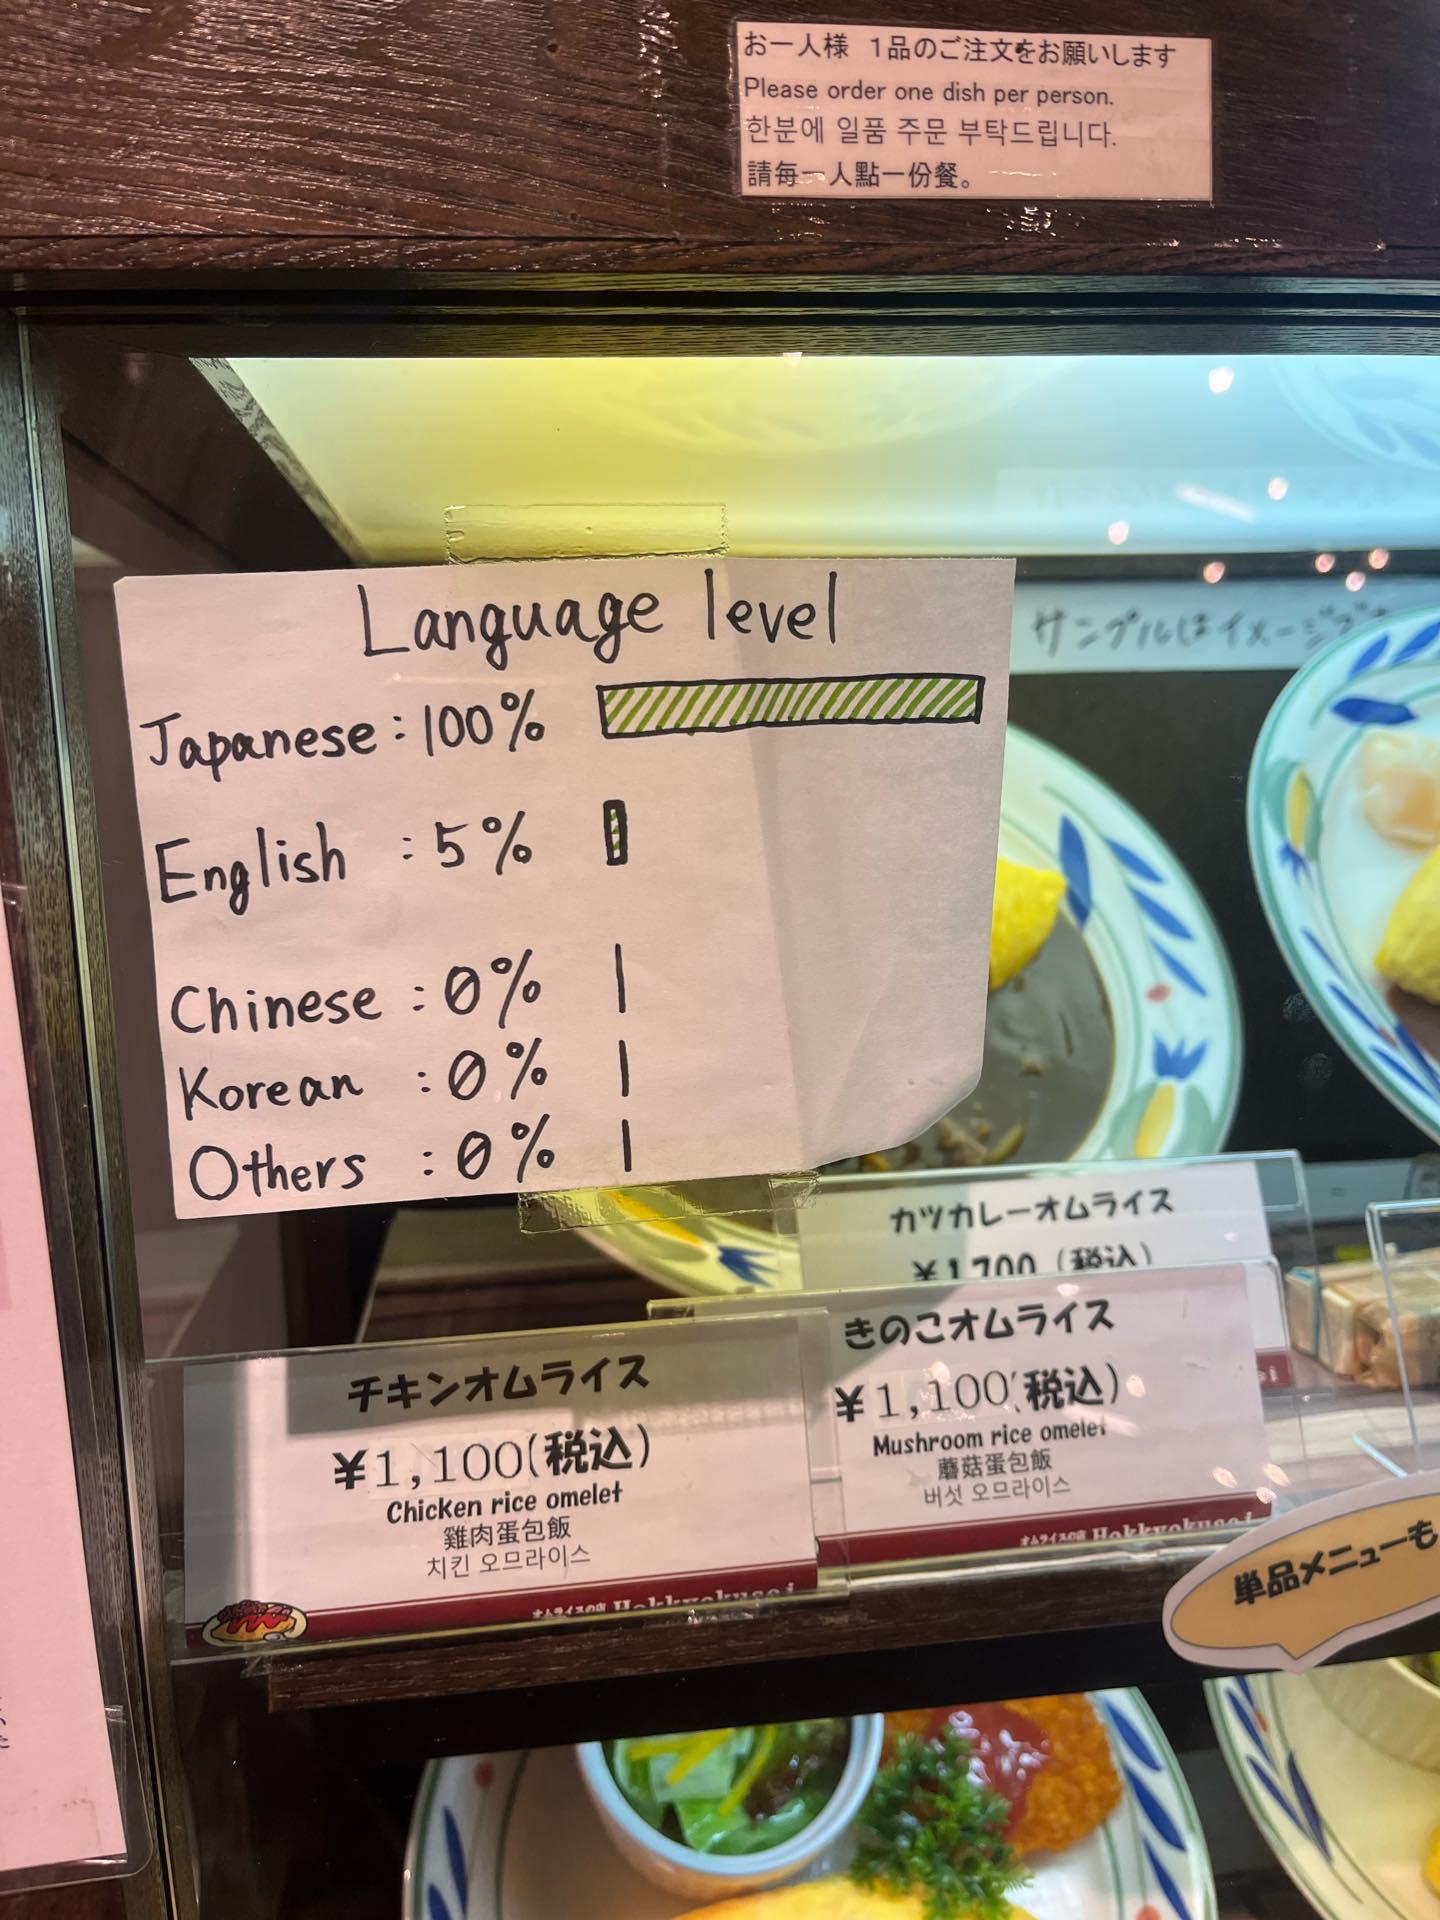 お一人様 1品のご注文をお願いします
Please order one dish per person.
한분에 일품 주문 부탁드립니다.
請每一人點一份餐。
Language level
Japanese : 100%
English : 5%
Chinese : 0%
Korean : 0%
Others : 0%
サンプルはイメージ
カツカレーオムライス
¥1,700 (税込)
きのこオムライス
¥1,100(税込)
Mushroom rice omelet
蘑菇蛋包飯
버섯 오므라이스
オムライスの店 Hokkyokusei
チキンオムライス
¥1,100(税込)
Chicken rice omelet
雞肉蛋包飯
치킨 오므라이스
オムライスの店 Hokkyokusei
単品メニューも